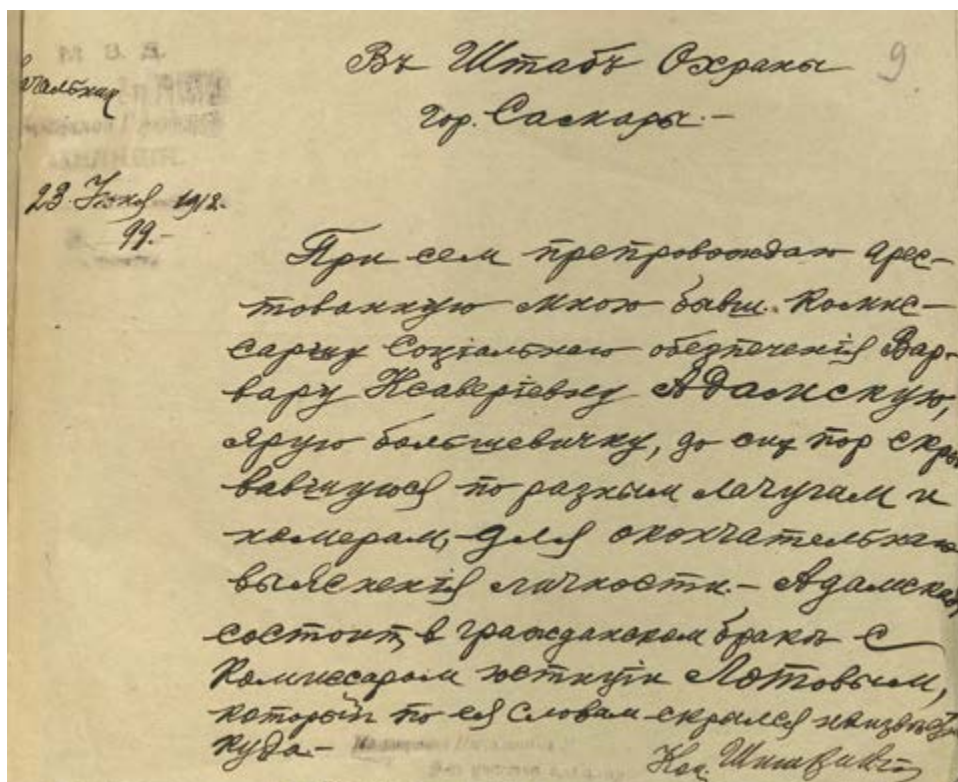 М. В. Д.
Начальник
23 Июня 1918.
99.-
9
Въ Штабъ Охраны
гор. Самары.-
При сем препровождаю арес-
тованную мною бывш. Комис-
саршу Соціальнаго обезпеченія Вар-
вару Ксаверіевну Адамскую,
ярую большевичку, до сих пор скры-
вавшуюся по разным лачугам и
номерам,- для окончательнаго
выясненія личности.- Адамская
состоит в гражданском бракѣ с
Комиссаром юстиціи Лотовым,
который по ея словам скрылся неизвѣстно
куда.-
Нач.